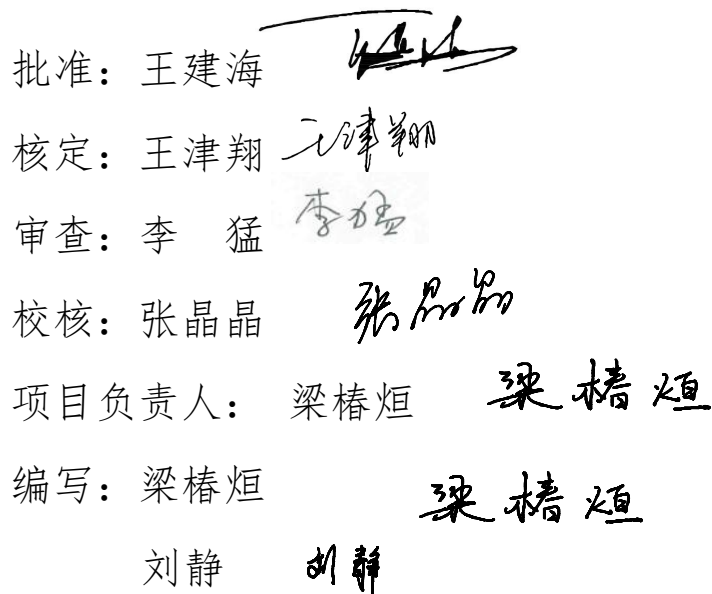 批准：王建海
核定：王津翔 王津翔
审查：李　猛 李猛
校核：张晶晶 张晶晶
项目负责人： 梁椿烜 梁椿烜
编写：梁椿烜 梁椿烜
刘静 刘静